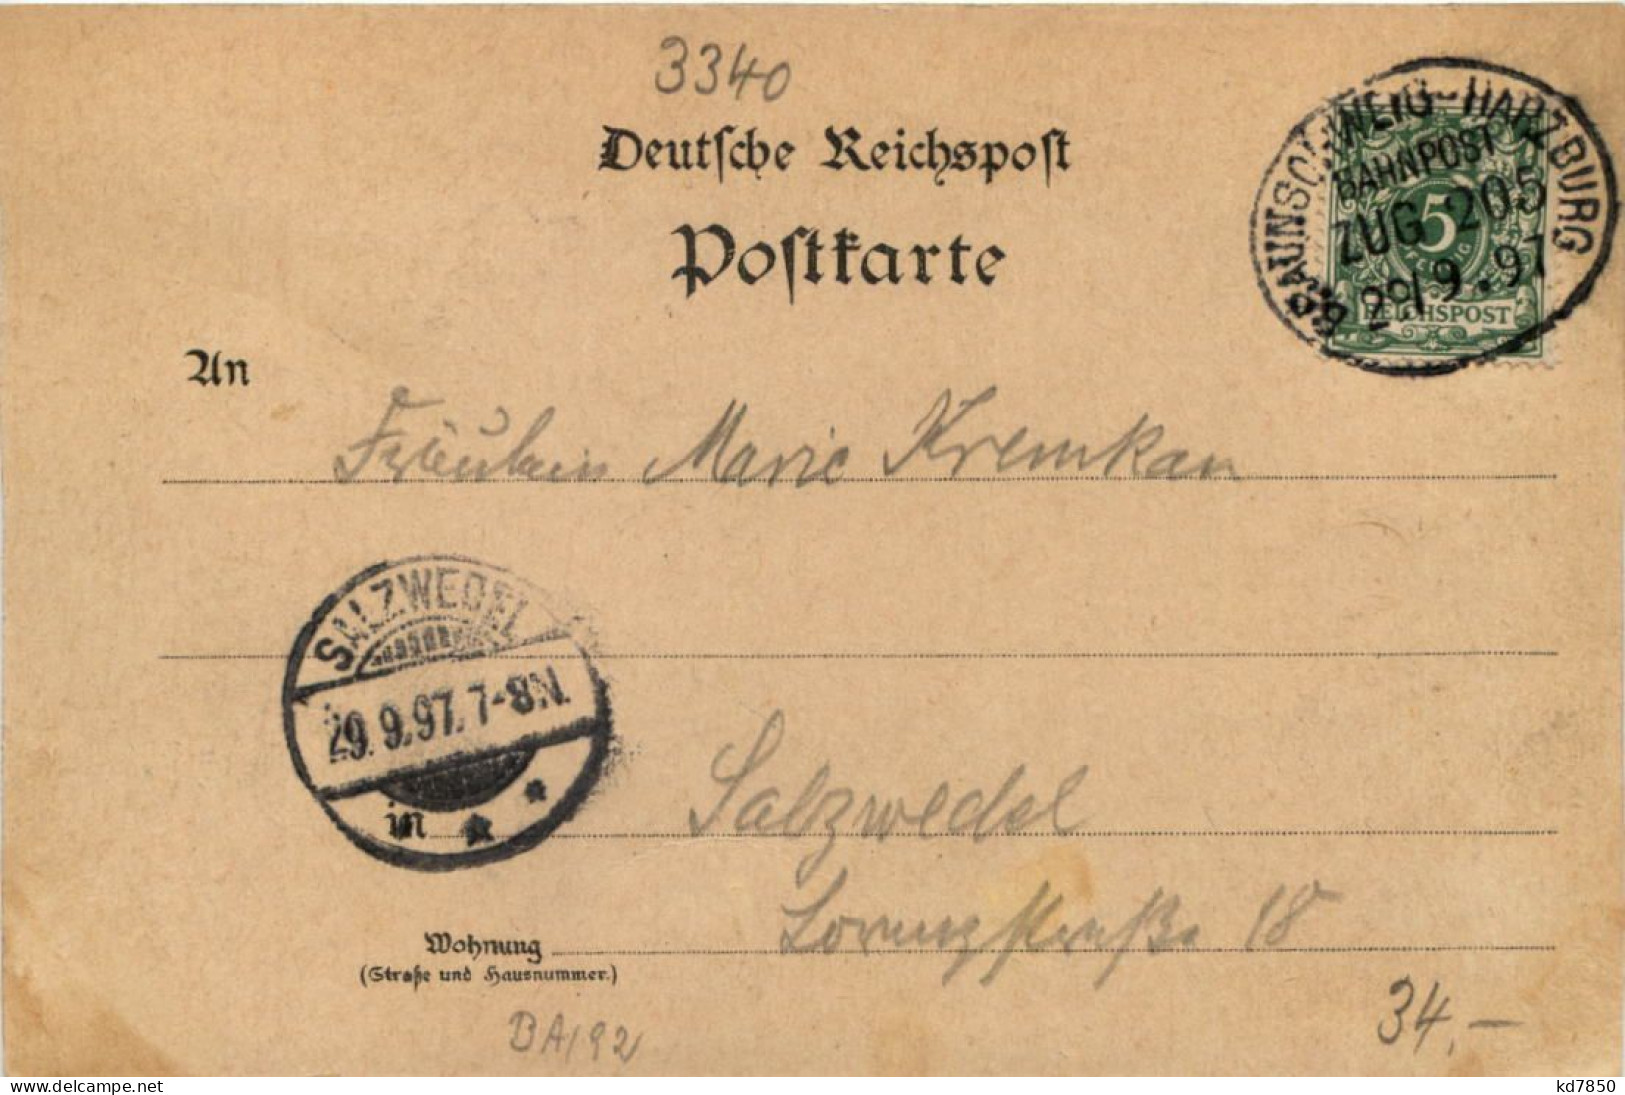 3340
Deutsche Reichspost
Postkarte
BRAUNSCHWEIG-HARZBURG
BAHNPOST
ZUG 205
29/9.97
5
PFENNIG
REICHSPOST
An
Fräulein Marie Kremkau
SALZWEDEL
29.9.97.7-8N.
in
Salzwedel
Lorenzstraße 18
Wohnung
(Straße und Hausnummer.)
34,-
BA192
www.delcampe.net
kd7850